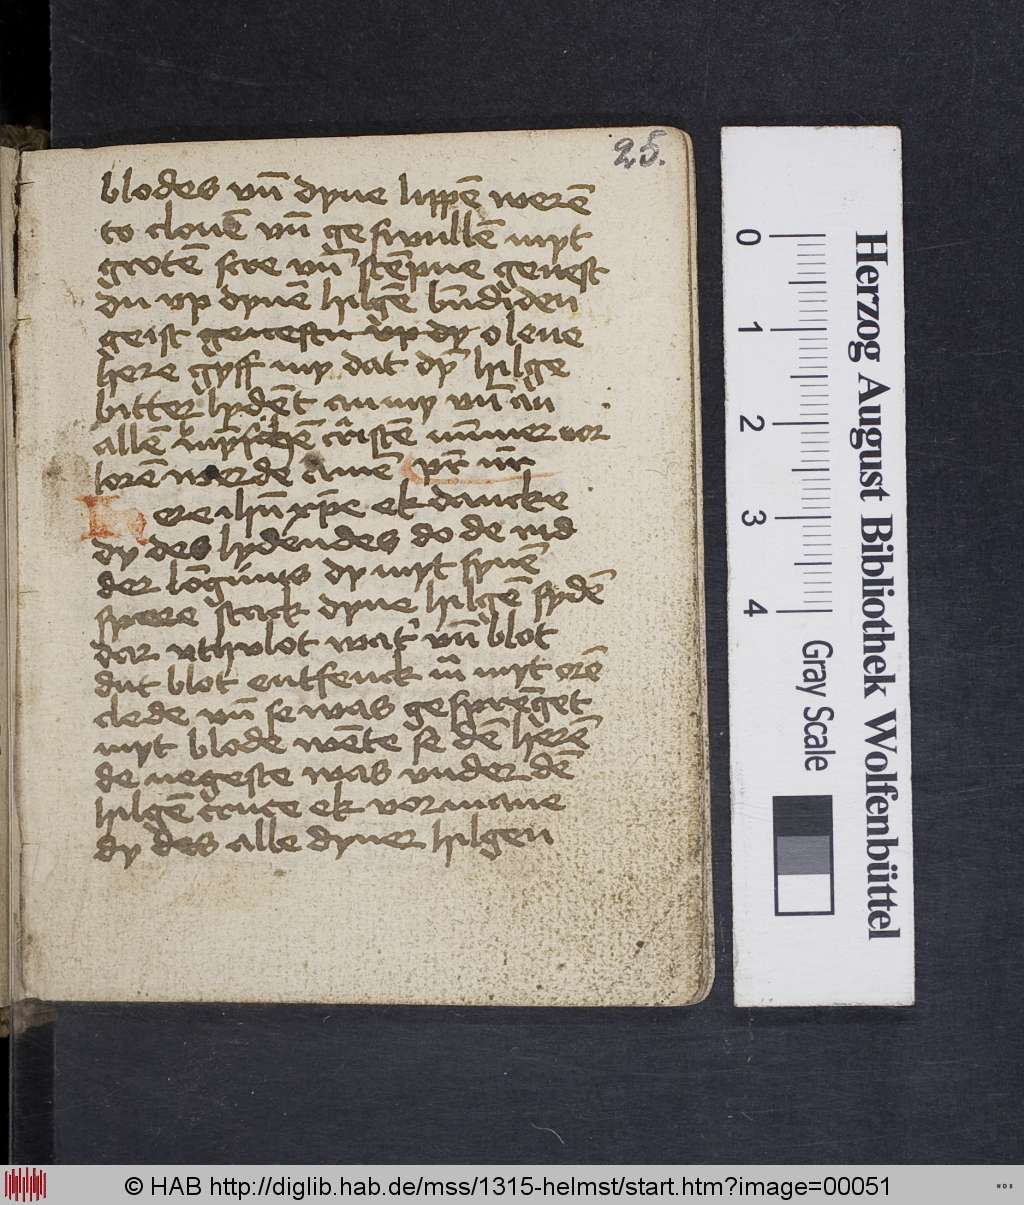 25.
blodes vn̄ dyne lippē werē
to clouē vn̄ geswullē myt
grotē scre vn̄ stēpne geuest
du vp dynē hilgē būdiden
geist geuestu vp dy o leue
here gyff my dat dȳ hilge
bitter lydēt an my vn̄ an
allē mȳschē cristē nūmer vor
lorē werde amē pr̄ nr̄
Here ihū xp̄e ek dancke
dy des lydendes do de rid
der lōginus dy myt synē
spere stack dyne hilgē sydē
dar vthvlot wat' vn̄ blot
dut blot entfenck m̄ myt orē
clede vn̄ se was gesprēget
myt blode wēte se dē herē
de negeste was vnder dē
hilgē cruce ek vormane
dy des alle dyner hilgen
0
1
2
3
4
Gray Scale
Herzog August Bibliothek Wolfenbüttel
© HAB http://diglib.hab.de/mss/1315-helmst/start.htm?image=00051